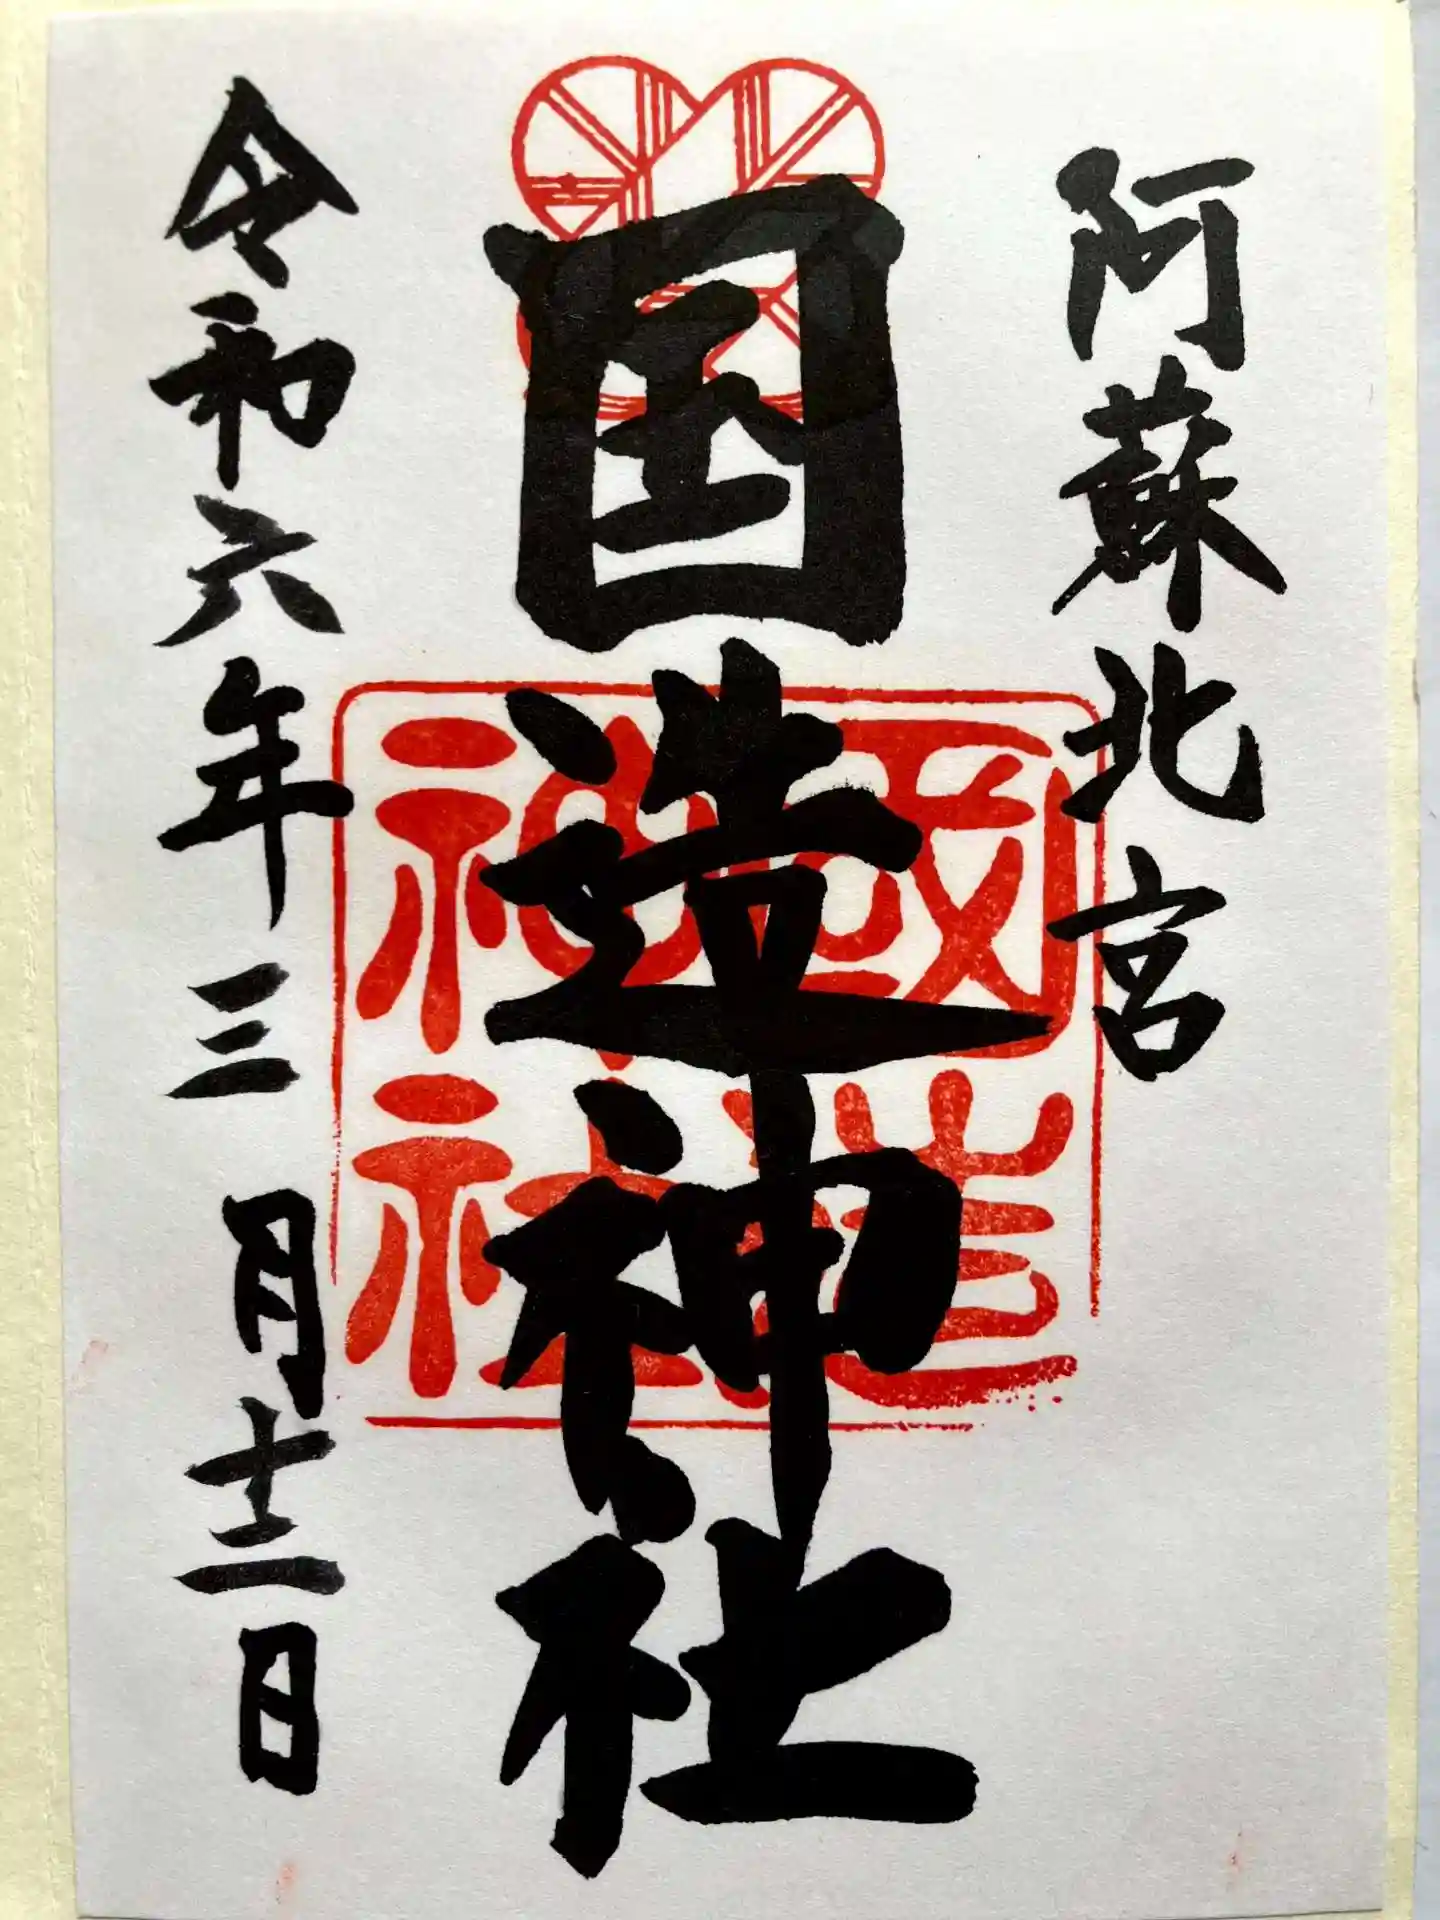 阿蘇北宮
国造神社
國造神社
令和六年三月十二日